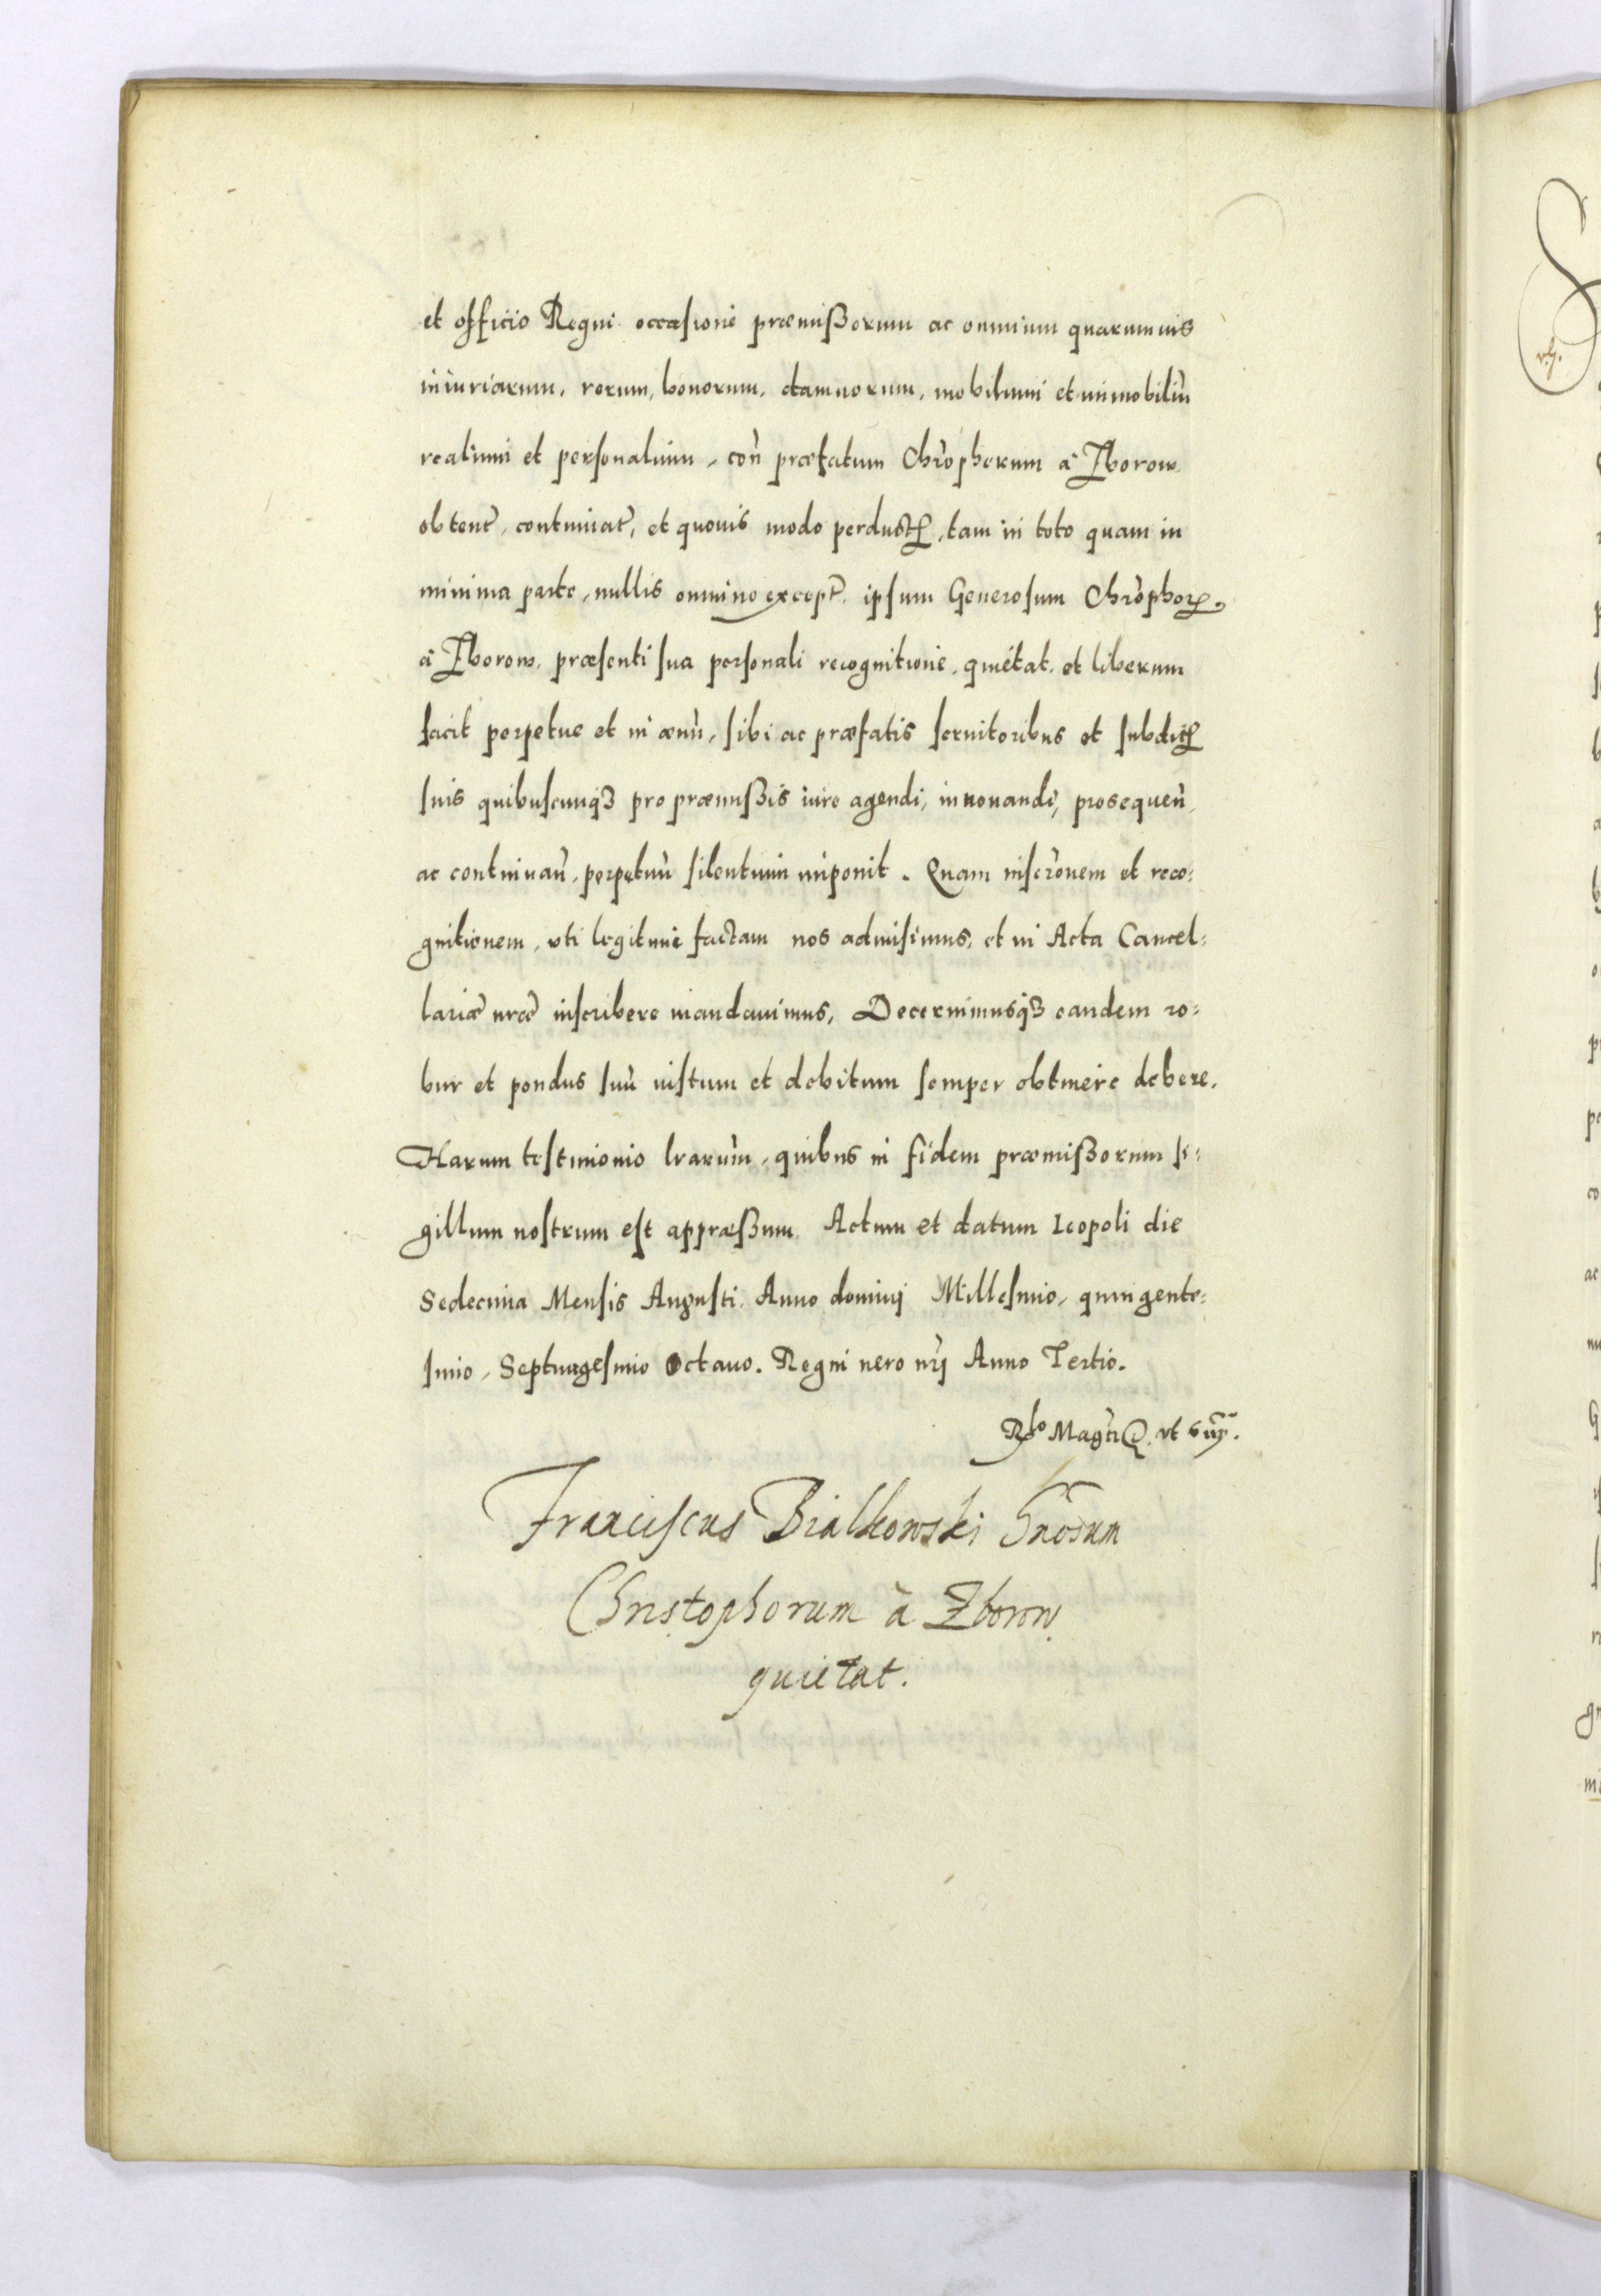 et officio Regni occasione præmißorum ac omnium quarumuis
iniuriarum, rerum, bonorum, damnorum, mobilium et immobiliũ
realium et personalium, cõn præfatum Chrõphorum à Zborow
obtent, continuat, et quouis modo perduct, tam in toto quam in
minima parte, nullis omnino except, ipsum Generosum Chrõphor.
à Zborow, præsenti sua personali recognitione, quietat, et liberum
facit perpetue et in æuũ, sibi ac præfatis seruitoribus et subdit
suis quibuscunqꝫ pro præmißis iure agendi, innouandi, prosequeñ,
ac continuañ, perpetuũ silentium imponit. Quam inscrõnem et reco:
gnitionem, vti legitime factam nos admisimus, et in Acta Cancel:
lariæ nræ inscribere mandauimus, Decernimusqꝫ eandem ro:
bur et pondus suũ iustum et debitum semper obtinere debere.
Harum testimonio lrarũm, quibus in fidem præmißorum si:
gillum nostrum est appræßum. Actum et datum Leopoli die
Sedecima Mensis Augusti. Anno dominj Millesimo, quingente:
simo, Septuagesimo Octauo. Regni uero nrj Anno Tertio.
Rlo Magci D. vt
Franciscus Bialkowski Gnosum
Christophorum à Zborow
quietat.